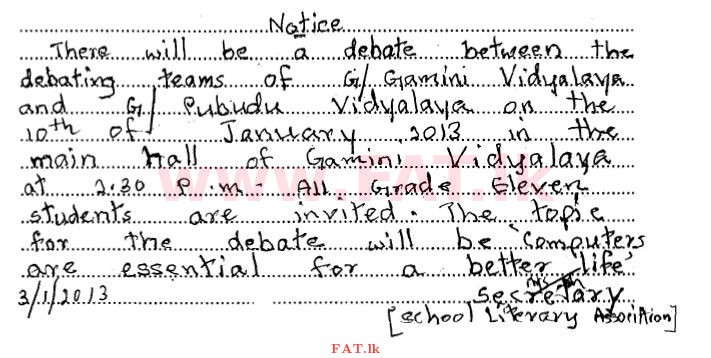 Notice
There will be a debate between the
debating teams of G/ Gamini Vidyalaya
and G/ Pubudu Vidyalaya on the
10th of January 2013 in the
main hall of Gamini Vidyalaya
at 2.30 P.m. All Grade Eleven
students are invited. The topic
for the debate will be 'Computers
are essential for a better life'
3/1/2013 Secretary
[School Literary Association]
www.FAT.lk
FAT.lk